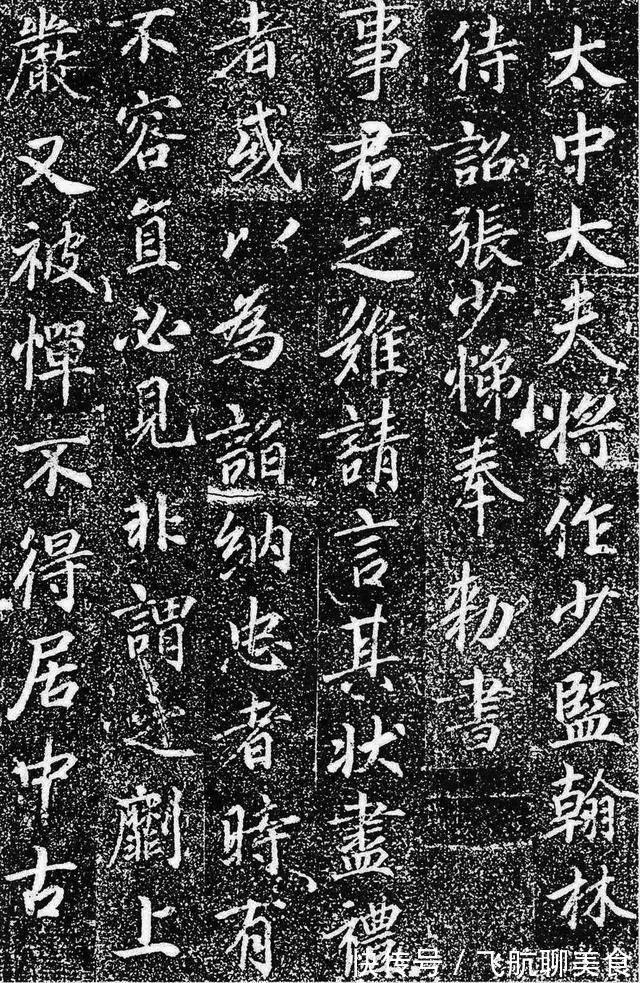 太中大夫將作少監翰林
待詔張少悌奉 勅書
事君之難請言其狀盡禮
者或以為諂納忠者時有
不容直必見非謂之劘上
嚴又被憚不得居中古
快传号／飞航聊美食